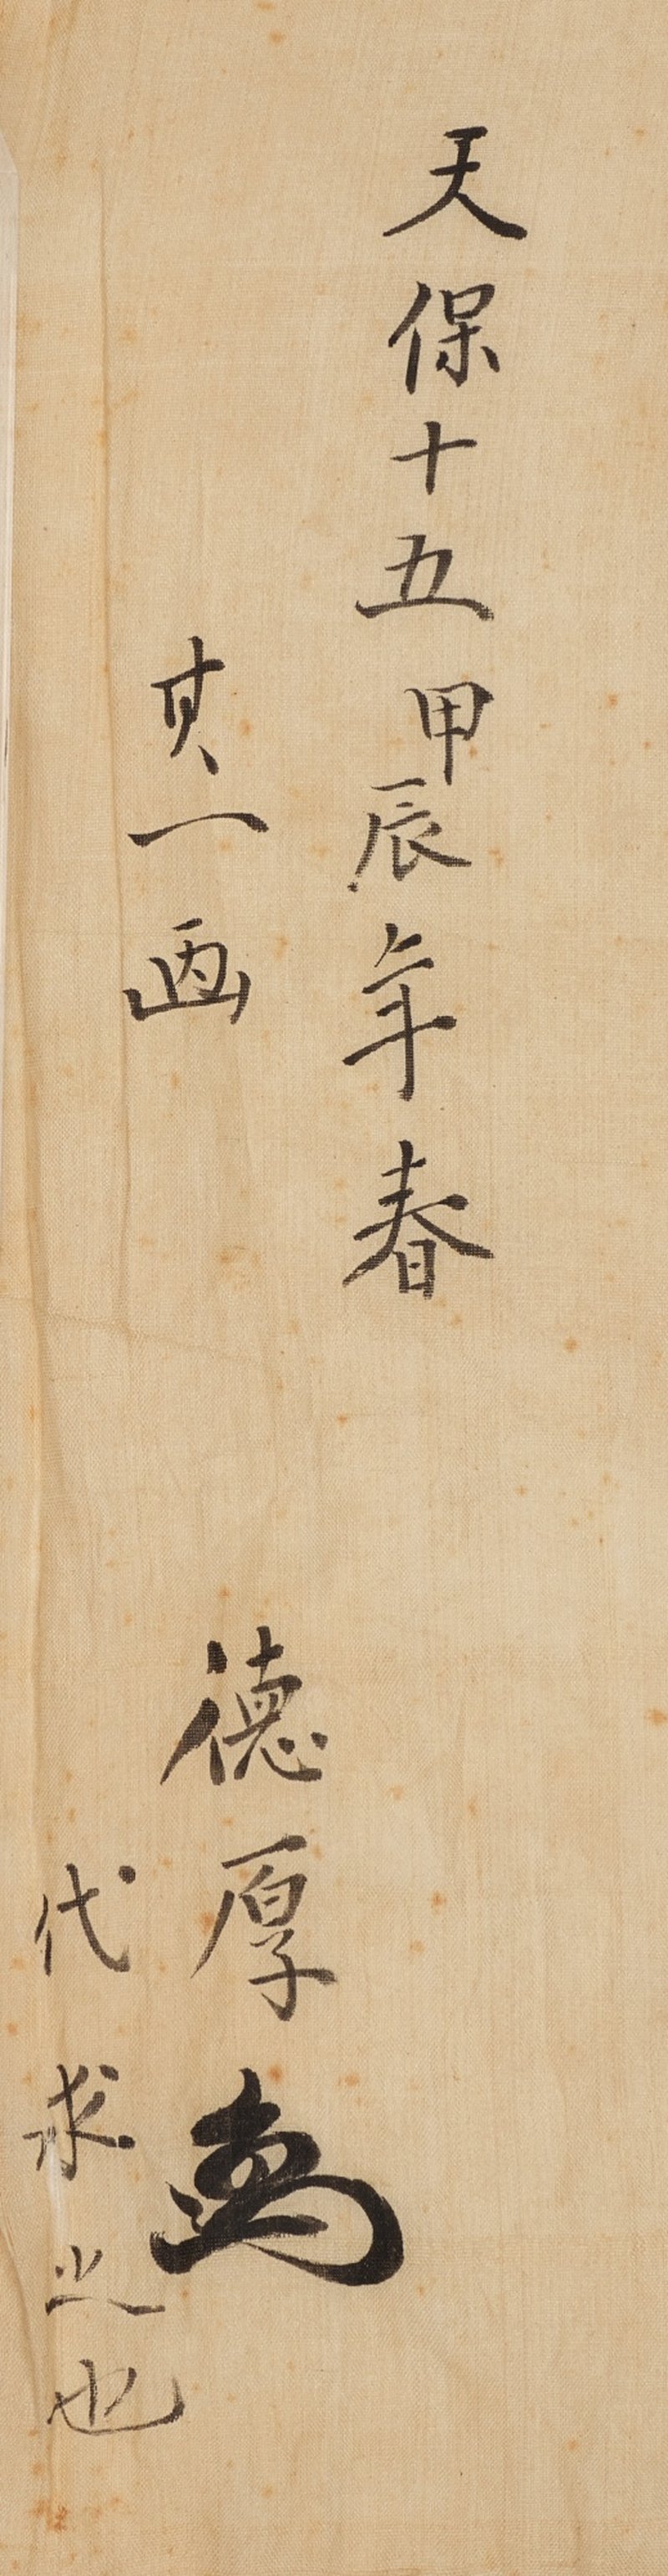 天保十五甲辰年春
其一画
德厚
代求之也